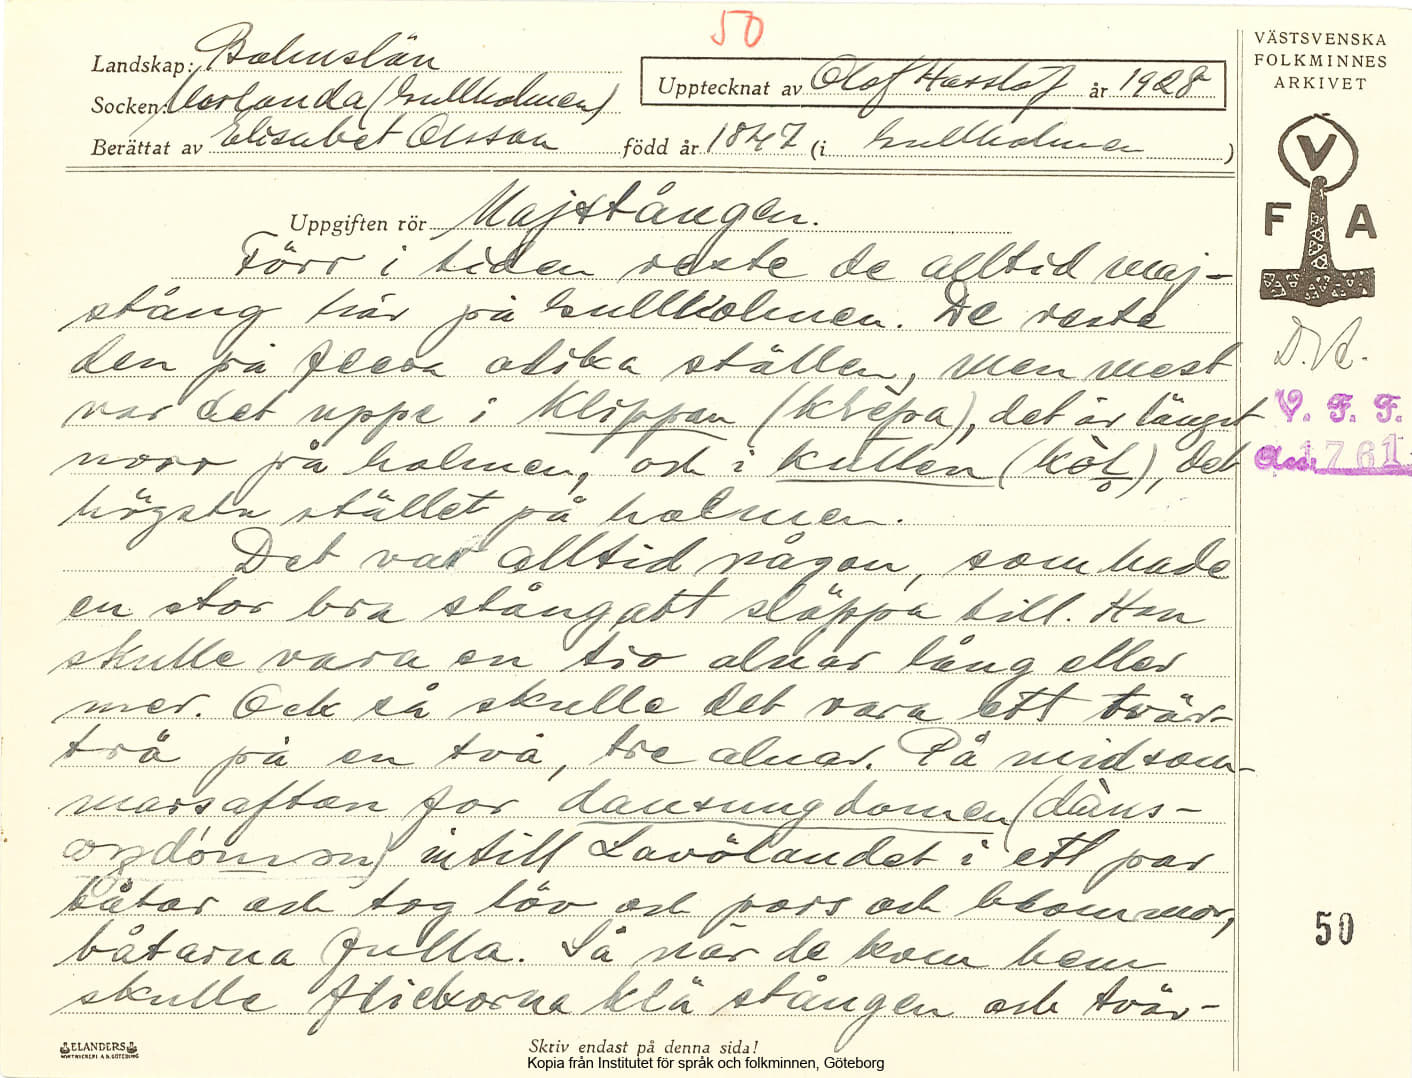 50
VÄSTSVENSKA
FOLKMINNES
ARKIVET
Landskap: Bohuslän
Socken: Morlanda (Gullholmen)
Upptecknat av Olof Hasslöf år 1928
Berättat av Elisabet Olsson född år 1847 (i Gullholmen)
V
F A
Uppgiften rör Majstången.
Förr i tiden reste de alltid maj-
stång här på Gullholmen. De reste
den på flera olika ställen, men mest
var det uppe i Klippan (klépa), det är längst
norr på holmen, och i kullen (kòl), det
högsta stället på holmen.
Det var alltid någon, som hade
en stor bra stång att släppa till. Han
skulle vara en tio alnar lång eller
mer. Och så skulle det vara ett tvär-
trä på en två, tre alnar. På midsom-
marsafton for dansungdomen (dàns-
intill Lavölandet i ett par
båtar och tog löv och pors och blommor,
båtarna fulla. Så när de kom hem
skulle flickorna klä stången och tvär-
V. F. F.
Acc. 1761
50
ELANDERS
BOKTRYCKERI A.B. GÖTEBORG
Skriv endast på denna sida!
Kopia från Institutet för språk och folkminnen, Göteborg